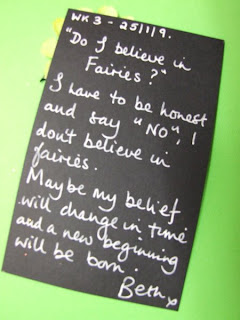 WK 3 - 25/1/9.
"Do I believe in
Fairies?"
I have to be honest
and say "NO", I
don't believe in
fairies.
Maybe my belief
will change in time
and a new beginning
will be born.
Beth x